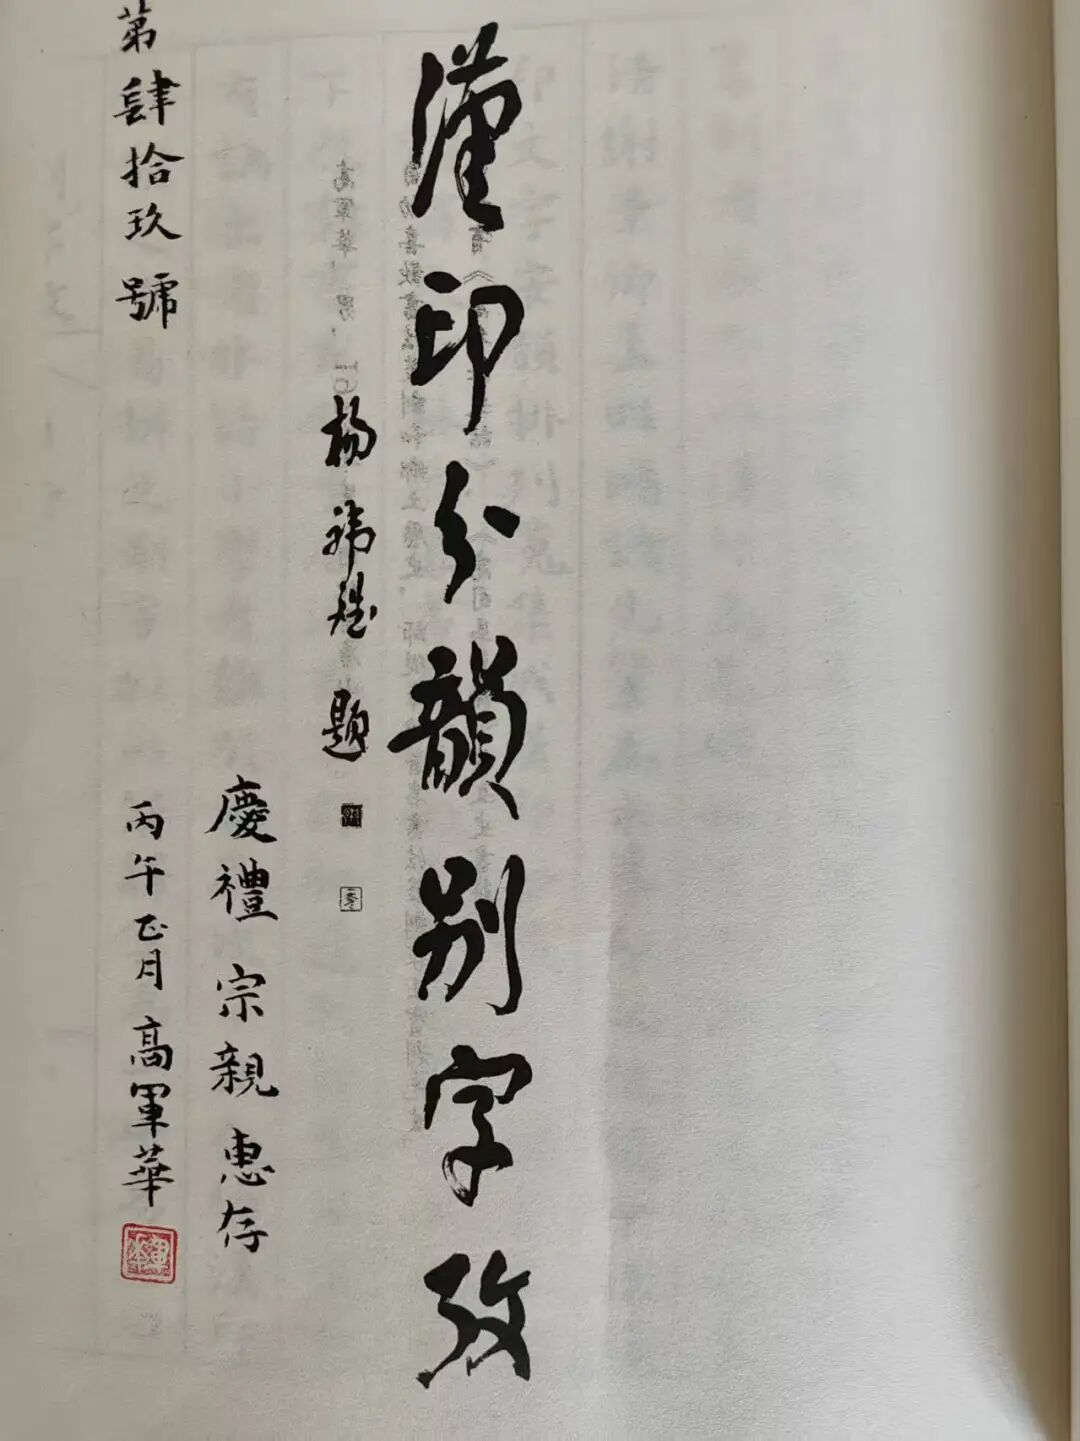 漢印分韻別字攷
楊 題
慶禮宗親惠存
丙午正月高軍華
第肆拾玖號